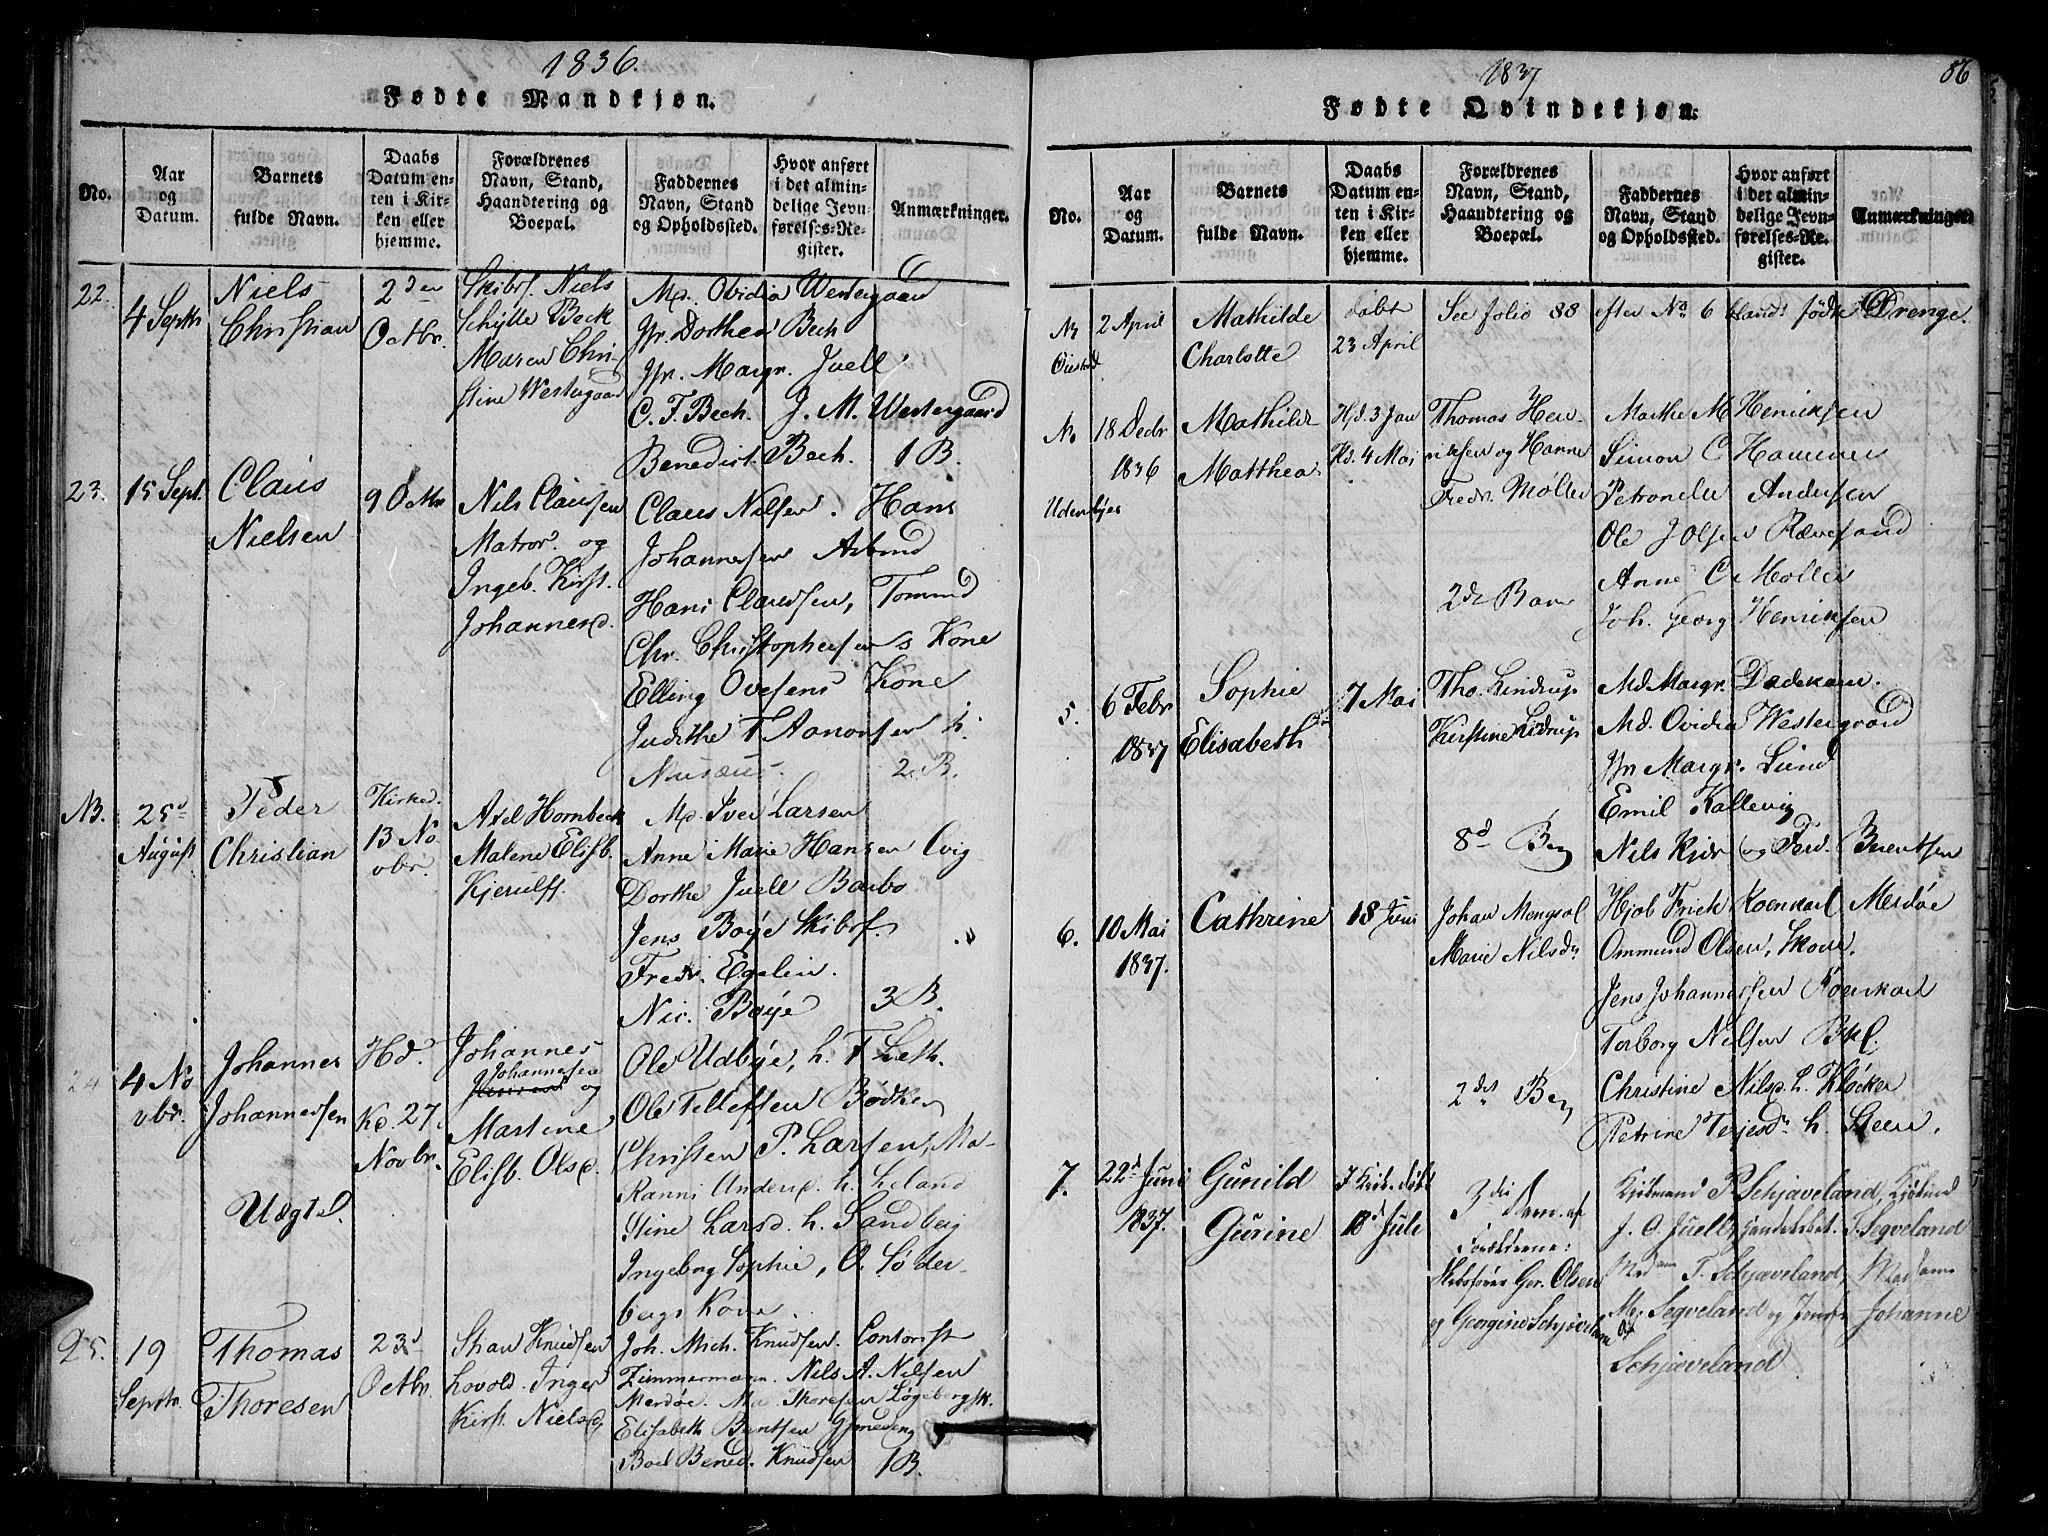 1836.
Fødte Mandkjøn.
No.
Aar og Datum.
Barnets fulde Navn.
Daabs Datum enten i Kirken eller hjemme.
Forældrenes Navn, Stand, Haandtering og Boepæl.
Faddernes Navn, Stand og Opholdssted.
Hvor anført i det almindelige Jevnførelses-Register.
Anmærkninger.
22.
4 Septbr
Niels
Christian
2den
Octbr.
Skibsf. Niels
Schytte Beck
Maren Chri-
stine Westergaard
Md. Ovidia Westergaard
Jfr. Dorthea Bech
Jfr. Margr. Juell
C. F. Bech. J. M. Westergaard
Benedict. Bech. 1 B.
23.
15 Sept.
Claus
Nielsen
9 Octbr
Nils Clausen
Matros. og
Ingeb. Kirst.
Johannesd.
Claus Nilsen. Hans
Johannesen Asbnd
Hans Claussen, Tomnd
Chr. Christophersens Kone
Elling Ovesens Kone
Judithe T Aanonsen h.
Nusæus. 2. B.
NB.
25d
August
Peder
Christian
Kirked.
13 No
vbr.
Axel Hornbeck
Malene Elisb.
Kjerulff.
Md. Iver Larsen
Anne Marie Hansen Qvig
Dorthe Juell Barbo
Jens Boye Skibsf.
Fredr. Egelin.
Nic. Boye 3 B.
24
4 No
vbr.
Johannes
Johannessen
Uægte.
Hd.
Kd. 27
Novbr.
Johannes
Johannesen
og
Martine
Elisb. Olsd.
Ole Udbye, h. T Leth.
Ole Tellefsen Bødker
Christen P. Larsen, Ma-
Ranni Andersd. h. Leland
Stine Larsd. h. Sandberg
Ingeborg Sophie, O. Söder-
bergs Kone.
25.
19
Septbr.
Thomas
Thoresen
23d
Octbr.
Knudsen
Lovold. Inger
Kirst. Nielsd.
Joh. Mich. Knudsen. Contorist
Zimmermann. Nils A. Nilsen
Merdøe. Thoresen Løgebergsk.
Elisabeth Berntsen
Boel Bened. Knudsen 1 B.
1837
86
Fødte Qvindekjøn.
No.
Aar og Datum.
Barnets fulde Navn.
Daabs Datum enten i Kirken eller hjemme.
Forældrenes Navn, Stand, Haandtering og Boepæl.
Faddernes Navn, Stand og Opholdssted.
Hvor anført i det almindelige Jevnførelses-Register.
Anmærkninger.
NB
Øiestad
2 April
Mathilde
Charlotte
døbt
23 April
See folio 88 efter No 6 blandt fødte Drenge.
No
Udenbyes
18 Decbr
1836
Mathilde
Matthea
Hd. 3 Jan
Kd. 4 Mai
Thomas Hen-
riksen og Hanne
Fredr. Møller
2det Barn
Marthe M Henriksen
Simon C Hammer
Petronelle Andersen
Ole J Olsen Rævesand
Anne C Møller
Joh. Georg Henriksen
5.
6 Febr
1837
Sophie
Elisabeth
7 Mai
Tho. Lindrup
Kirstine Lidrup
8d Bn
Md. Margr. Dedekam.
Md. Ovidia Westergaard
Jfr Margr. Lund
Emil Kallevig
Nils Kjær og Ferd. Berentsen
6.
10 Mai
1837.
Cathrine
18 Juni
Johan Mengsol
Marie Nilsdr
2det Bn
Hjob Frick Roenkarl Merdøe
Ommund Olsen, Skom.
Jens Johannessen Roenkarl
Torborg Nilsen Bkl.
Christine Nilsd. h. Kløcker
Petrine Terjesdr h. Steen.
7.
22d Juni
1837.
Gunild
Gurine
I Kirke døbt
18d Juli
3die Barn af
Forældrene:
Skibsfører Ger. Olsen
og Georgine Schjæveland
Kjøbmand P. Schjæveland, Kjøbmd
J. O Juell, T. Segveland
Madam T. Schjæveland, Madame
M. Segveland og Jomfr. Johanne
Schjæveland.